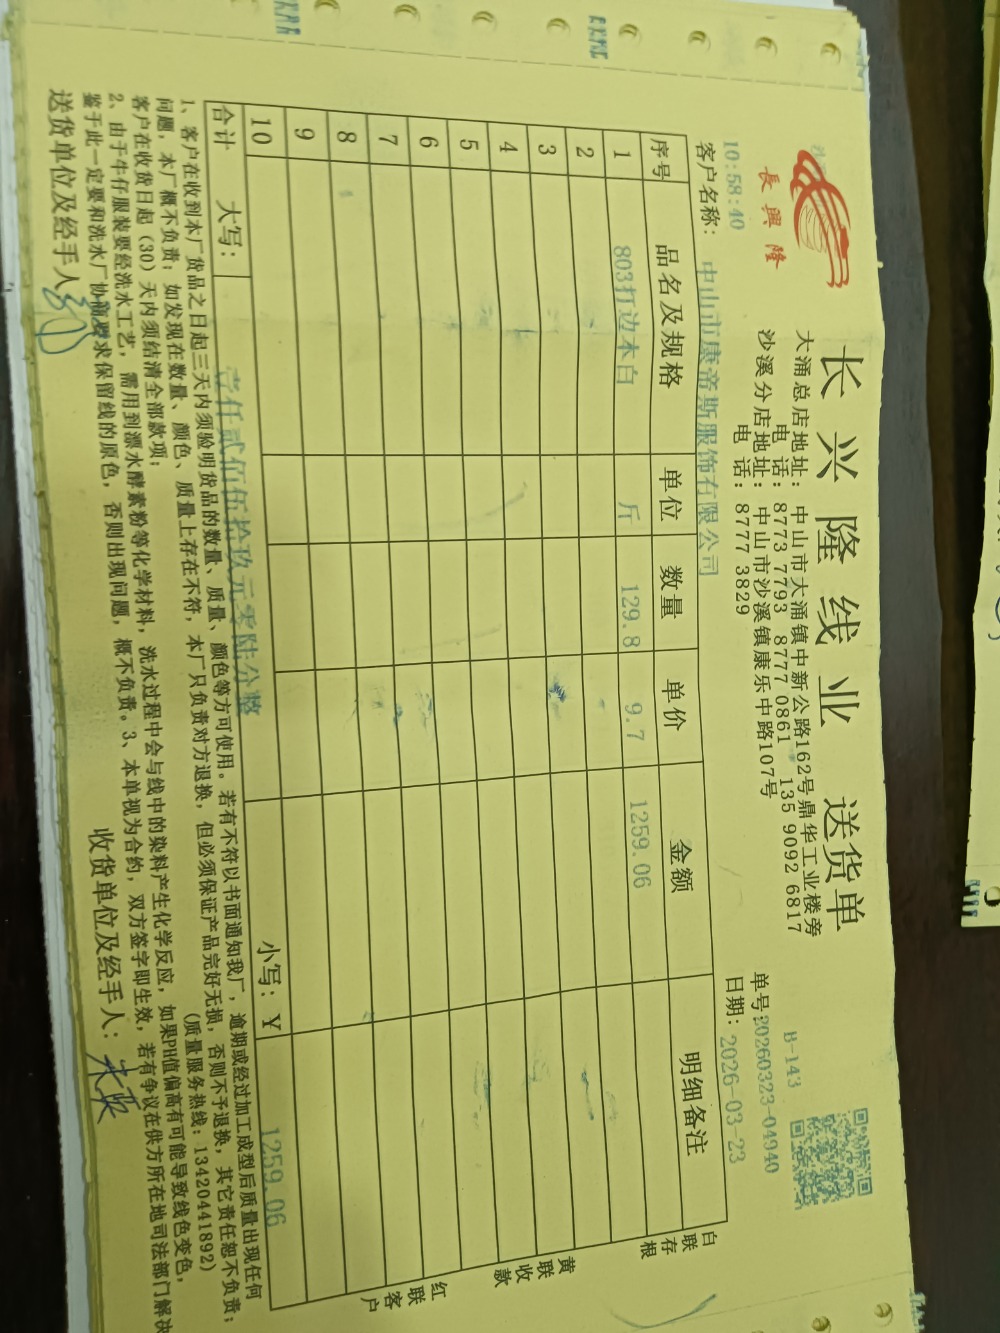 長興隆
长兴隆线业 送货单
大涌总店地址：中山市大涌镇中新公路162号鼎华工业楼旁
电话：8773 7793 8777 0861 135 9092 6817
沙溪分店地址：中山市沙溪镇康乐中路107号
电话：8777 3829
B-143
单号：20260323-04940
10:58:40
日期：2026-03-23
客户名称：中山市康帝斯服饰有限公司
序号 品名及规格 单位 数量 单价 金额 明细备注
1 803打边本白 斤 129.8 9.7 1259.06
2
3
4
5
6
7
8
9
10
合计 大写：壹仟贰佰伍拾玖元零陆分整 小写：¥ 1259.06
白联存根
黄联收款
红联客户
1、客户在收到本厂货品之日起三天内须验明货品的数量、质量、颜色等方可使用。若有不符以书面通知我厂，逾期或经过加工成型后质量出现任何
问题，本厂概不负责；如发现在数量、颜色、质量上存在不符，本厂只负责对方退换，但必须保证产品完好无损，否则不予退换，其它责任恕不负责；
客户在收货日起（30）天内须结清全部款项； （质量服务热线：13420441892）
2、由于牛仔服装要经洗水工艺，需用到漂水酵素粉等化学材料，洗水过程中会与线中的染料产生化学反应，如果PH值偏高有可能导致线色变色，
鉴于此一定要和洗水厂协商要求保留线的原色，否则出现问题，概不负责。3、本单视为合约，双方签字即生效，若有争议在供方所在地司法部门解决
送货单位及经手人： 收货单位及经手人：